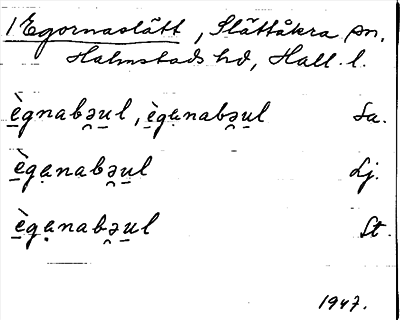 1 Egornaslätt, Slättåkra sn.
Halmstads hd, Hall. l.
ègnabə̯ul, èganabə̯ul Sa.
èganabə̯ul Lj.
èganabə̯ul St.
1947.